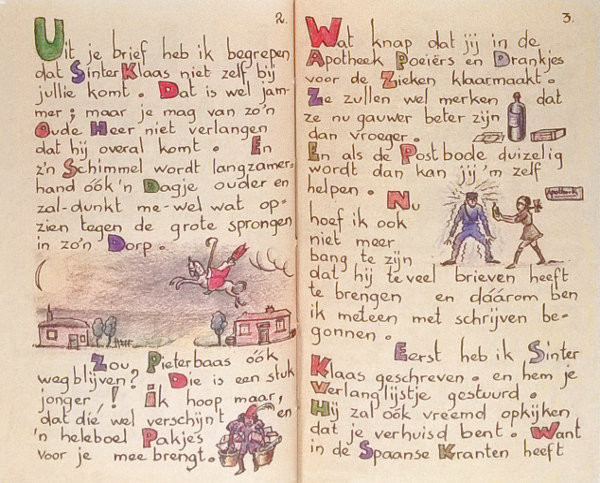 2.
Uit je brief heb ik begrepen
dat SinterKlaas niet zelf bij
jullie komt. Dat is wel jam-
mer; maar je mag van zo'n
Oude Heer niet verlangen
dat hij overal komt. En
z'n Schimmel wordt langzamer-
hand óók 'n Dagje ouder en
zal-dunkt me-wel wat op-
zien tegen de grote sprongen
in zo'n Dorp.
Zou, Pieterbaas óók
wegblijven? Die is een stuk
jonger,! ik hoop maar,
dat die wel verschijnt en
'n heleboel Pakjes
voor je mee brengt.
3.
Wat knap dat jij in de
Apotheek Poeiërs en Drankjes
voor de Zieken klaarmaakt.
Ze zullen wel merken dat
ze nu gauwer beter zijn
dan vroeger.
En als de Postbode duizelig
wordt dan kan jij 'm zelf
helpen. Nu
Apotheek
hoef ik ook
niet meer
bang te zijn
dat hij te veel brieven heeft
te brengen en dáárom ben
ik meteen met schrijven be-
gonnen.
Eerst heb ik Sinter
Klaas geschreven. en hem je
Verlanglijstje gestuurd.
Hij zal óók vreemd opkijken
dat je verhuisd bent. Want
in de Spaanse Kranten heeft